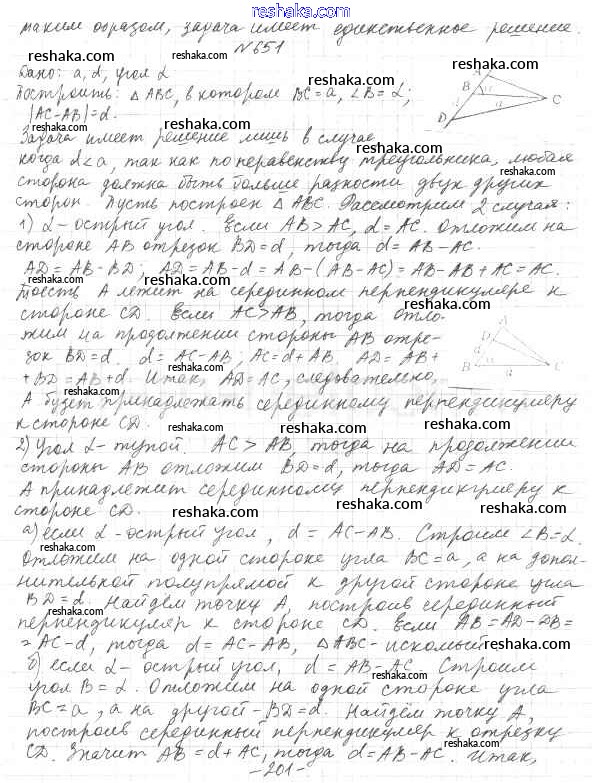 www.reshaka.com
таким образом, задача имеет единственное решение.
reshaka.com reshaka.com reshaka.com
№651
Дано: a, d, угол α
Построить: △ABC, в котором BC=a, ∠B=α;
|AC-AB|=d.
Задача имеет решение лишь в случае,
когда d<a, так как по неравенству треугольника, любая
сторона должна быть больше разности двух других
сторон. Пусть построен △ABC. Рассмотрим 2 случая:
1) α - острый угол. Если AB>AC, d=AC. Отложим на
стороне AB отрезок BD=d, тогда d=AB-AC.
AD=AB-BD; AD=AB-d=AB-(AB-AC)=AB-AB+AC=AC.
Тоесть A лежит на серединном перпендикулере к
стороне CD. Если AC>AB, тогда отло-
жим на продолжении стороны AB отре-
зок BD=d. d=AC-AB; AC=d+AB. AD=AB+
+BD=AB+d. Итак, AD=AC, следовательно,
A будет принадлежать серединному перпендикуляру
к стороне CD.
2) Угол α - тупой. AC>AB, тогда на продолжении
стороны AB отложим BD=d, тогда AD=AC.
A принадлежит серединному перпендикуляру к
стороне CD.
а) если α - острый угол, d=AC-AB. Строим ∠B=α.
Отложим на одной стороне угла BC=a, а на допол-
нительной полупрямой к другой стороне угла
BD=d. Найдём точку A, построив серединный
перпендикуляр к стороне CD. Если AB=AD-DB=
=AC-d, тогда d=AC-AB, △ABC - искомый.
б) если α - острый угол, d=AB-AC. Строим
угол B=α. Отложим на одной стороне угла
BC=a, а на другой - BD=d. Найдём точку A,
построив серединный перпендикуляр к отрезку
CD. Значит AB=d+AC, тогда d=AB-AC. Итак,
-201-